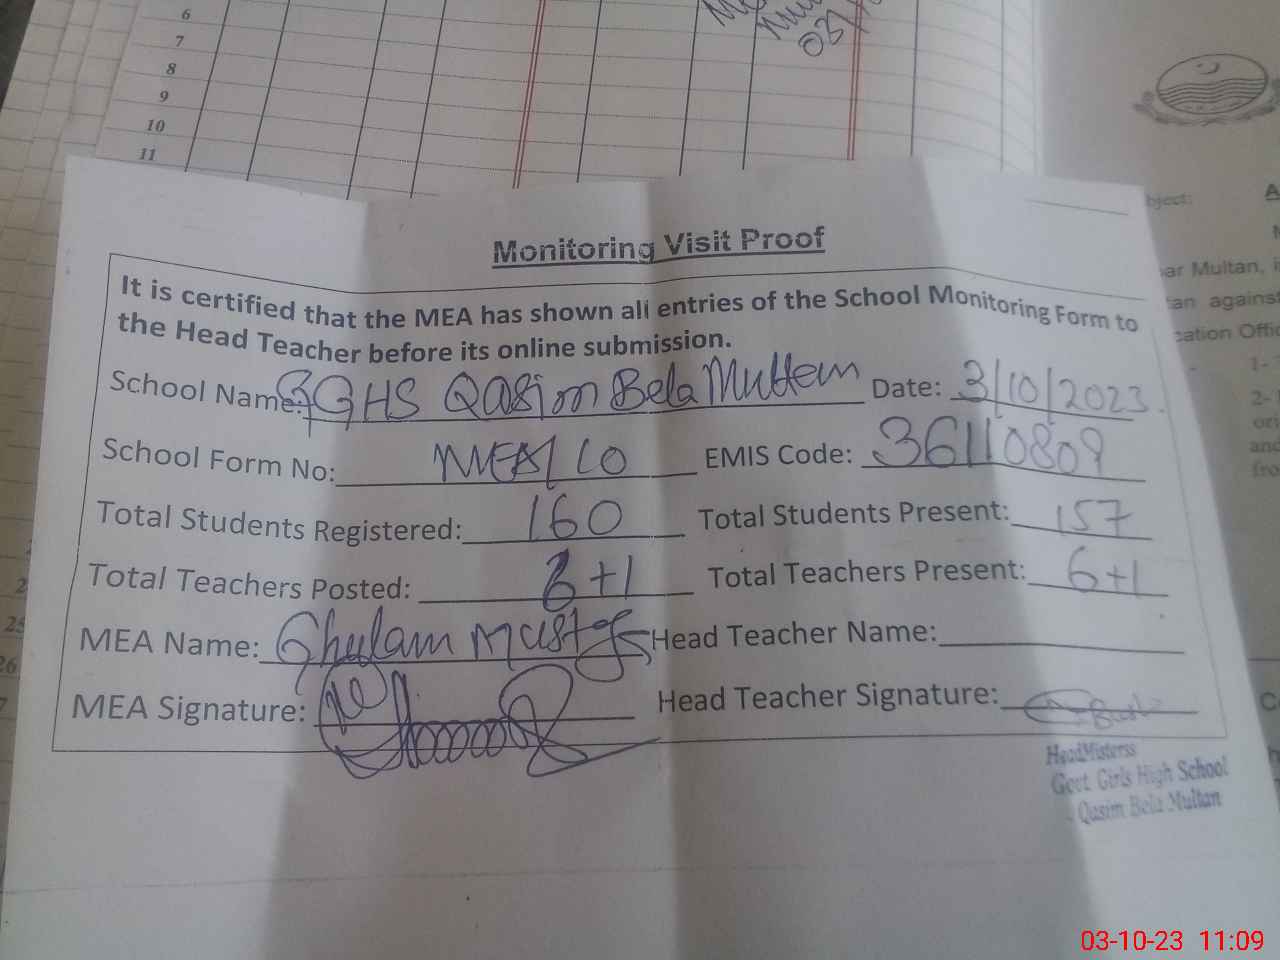 6
7
8
9
10
11
bject:
ar Multan, i
an against
cation Offic
Monitoring Visit Proof
It is certified that the MEA has shown all entries of the School Monitoring Form to
the Head Teacher before its online submission.
School Name: GGHS Qasim Bela Multan Date: 3/10/2023
School Form No: MEA/10 EMIS Code: 36110809
Total Students Registered: 160 Total Students Present: 157
Total Teachers Posted: 6+1 Total Teachers Present: 6+1
MEA Name: Ghulam Mustafa Head Teacher Name:
MEA Signature: Head Teacher Signature:
HeadMisterss
Govt. Girls High School
Qasim Bela Multan
03-10-23 11:09